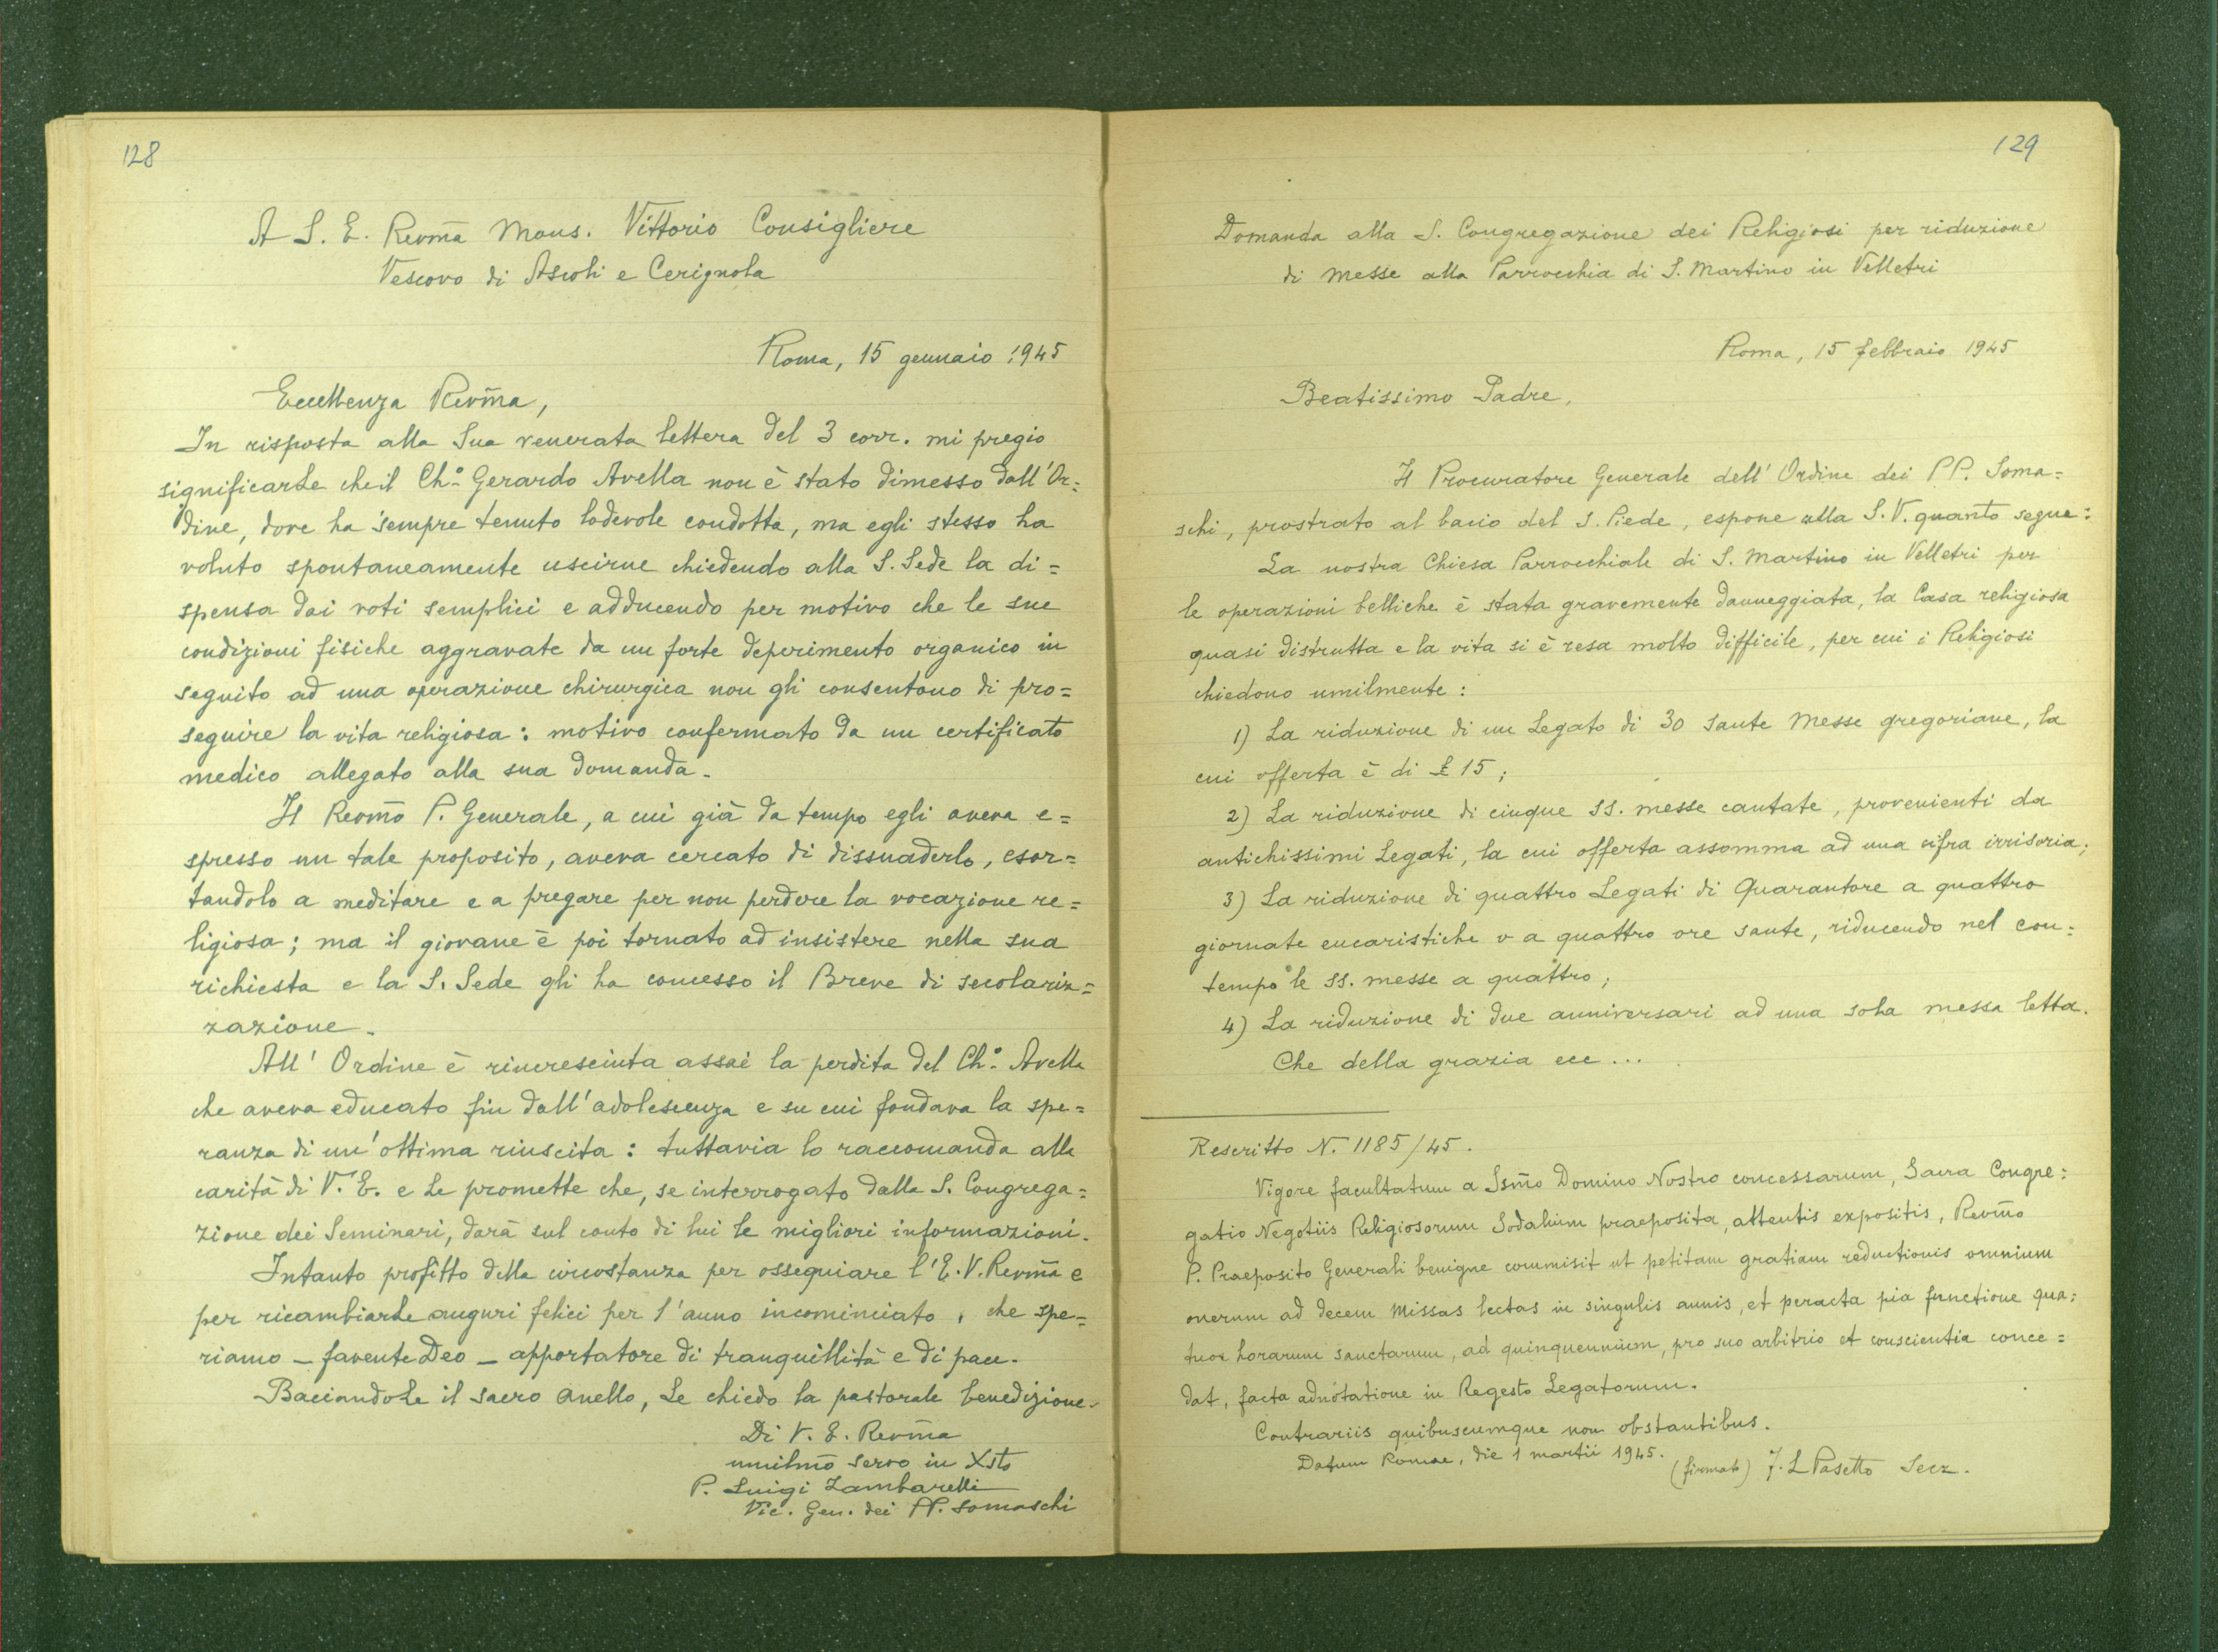 128
A S. E. Revm̄a Mons. Vittorio Consigliere
Vescovo di Ascoli e Cerignola
Roma, 15 gennaio 1945
Eccellenza Revm̄a,
In risposta alla Sua venerata lettera del 3 corr. mi pregio
significarLe che il Ch.° Gerardo Avella non è stato dimesso dall'Or=
dine, dove ha sempre tenuto lodevole condotta, ma egli stesso ha
voluto spontaneamente uscirne chiedendo alla S. Sede la di=
spensa dai voti semplici e adducendo per motivo che le sue
condizioni fisiche aggravate da un forte deperimento organico in
seguito ad una operazione chirurgica non gli consentono di pro=
seguire la vita religiosa: motivo confermato da un certificato
medico allegato alla sua domanda.
Il Revm̄o P. Generale, a cui già da tempo egli aveva e=
spresso un tale proposito, aveva cercato di dissuaderlo, esor=
tandolo a meditare e a pregare per non perdere la vocazione re=
ligiosa; ma il giovane è poi tornato ad insistere nella sua
richiesta e la S. Sede gli ha concesso il Breve di secolariz=
zazione.
All' Ordine è rincresciuta assai la perdita del Ch.° Avella
che aveva educato fin dall'adolescenza e su cui fondava la spe=
ranza di un'ottima riuscita: tuttavia lo raccomanda alla
carità di V. E. e Le promette che, se interrogato dalla S. Congrega=
zione dei Seminari, darà sul conto di lui le migliori informazioni.
Intanto profitto della circostanza per ossequiare l'E. V. Revm̄a e
per ricambiarLe auguri felici per l'anno incominciato, che spe=
riamo – favente Deo – apportatore di tranquillità e di pace.
BaciandoLe il sacro anello, Le chiedo la pastorale benedizione.
Di V. E. Revm̄a
umilm̄o servo in Xsto
P. Luigi Zambarelli
Vic. Gen. dei PP. Somaschi
129
Domanda alla S. Congregazione dei Religiosi per riduzione
di messe alla Parrocchia di S. Martino in Velletri
Roma, 15 febbraio 1945
Beatissimo Padre,
Il Procuratore Generale dell' Ordine dei PP. Soma=
schi, prostrato al bacio del S. Piede, espone alla S. V. quanto segue:
La nostra Chiesa Parrocchiale di S. Martino in Velletri per
le operazioni belliche è stata gravemente danneggiata, la Casa religiosa
quasi distrutta e la vita si è resa molto difficile, per cui i Religiosi
chiedono umilmente:
1) La riduzione di un Legato di 30 sante Messe gregoriane, la
cui offerta è di £ 15;
2) La riduzione di cinque SS. messe cantate, provenienti da
antichissimi Legati, la cui offerta assomma ad una cifra irrisoria;
3) La riduzione di quattro Legati di Quarantore a quattro
giornate eucaristiche o a quattro ore sante, riducendo nel con=
tempo le SS. messe a quattro;
4) La riduzione di due anniversari ad una sola messa letta.
Che della grazia ecc...
Rescritto N. 1185/45.
Vigore facultatum a Ssm̄o Domino Nostro concessarum, Sacra Congre=
gatio Negotiis Religiosorum Sodalium praeposita, attentis expositis, Revm̄o
P. Praeposito Generali benigne commisit ut petitam gratiam reductionis omnium
onerum ad decem Missas lectas in singulis annis, et peracta pia functione qua=
tuor horarum sanctarum, ad quinquennium, pro suo arbitrio et conscientia conce=
dat, facta adnotatione in Regesto Legatorum.
Contrariis quibuscumque non obstantibus.
Datum Romae, die 1 martii 1945.
(firmato) F. L Pasetto Secr.